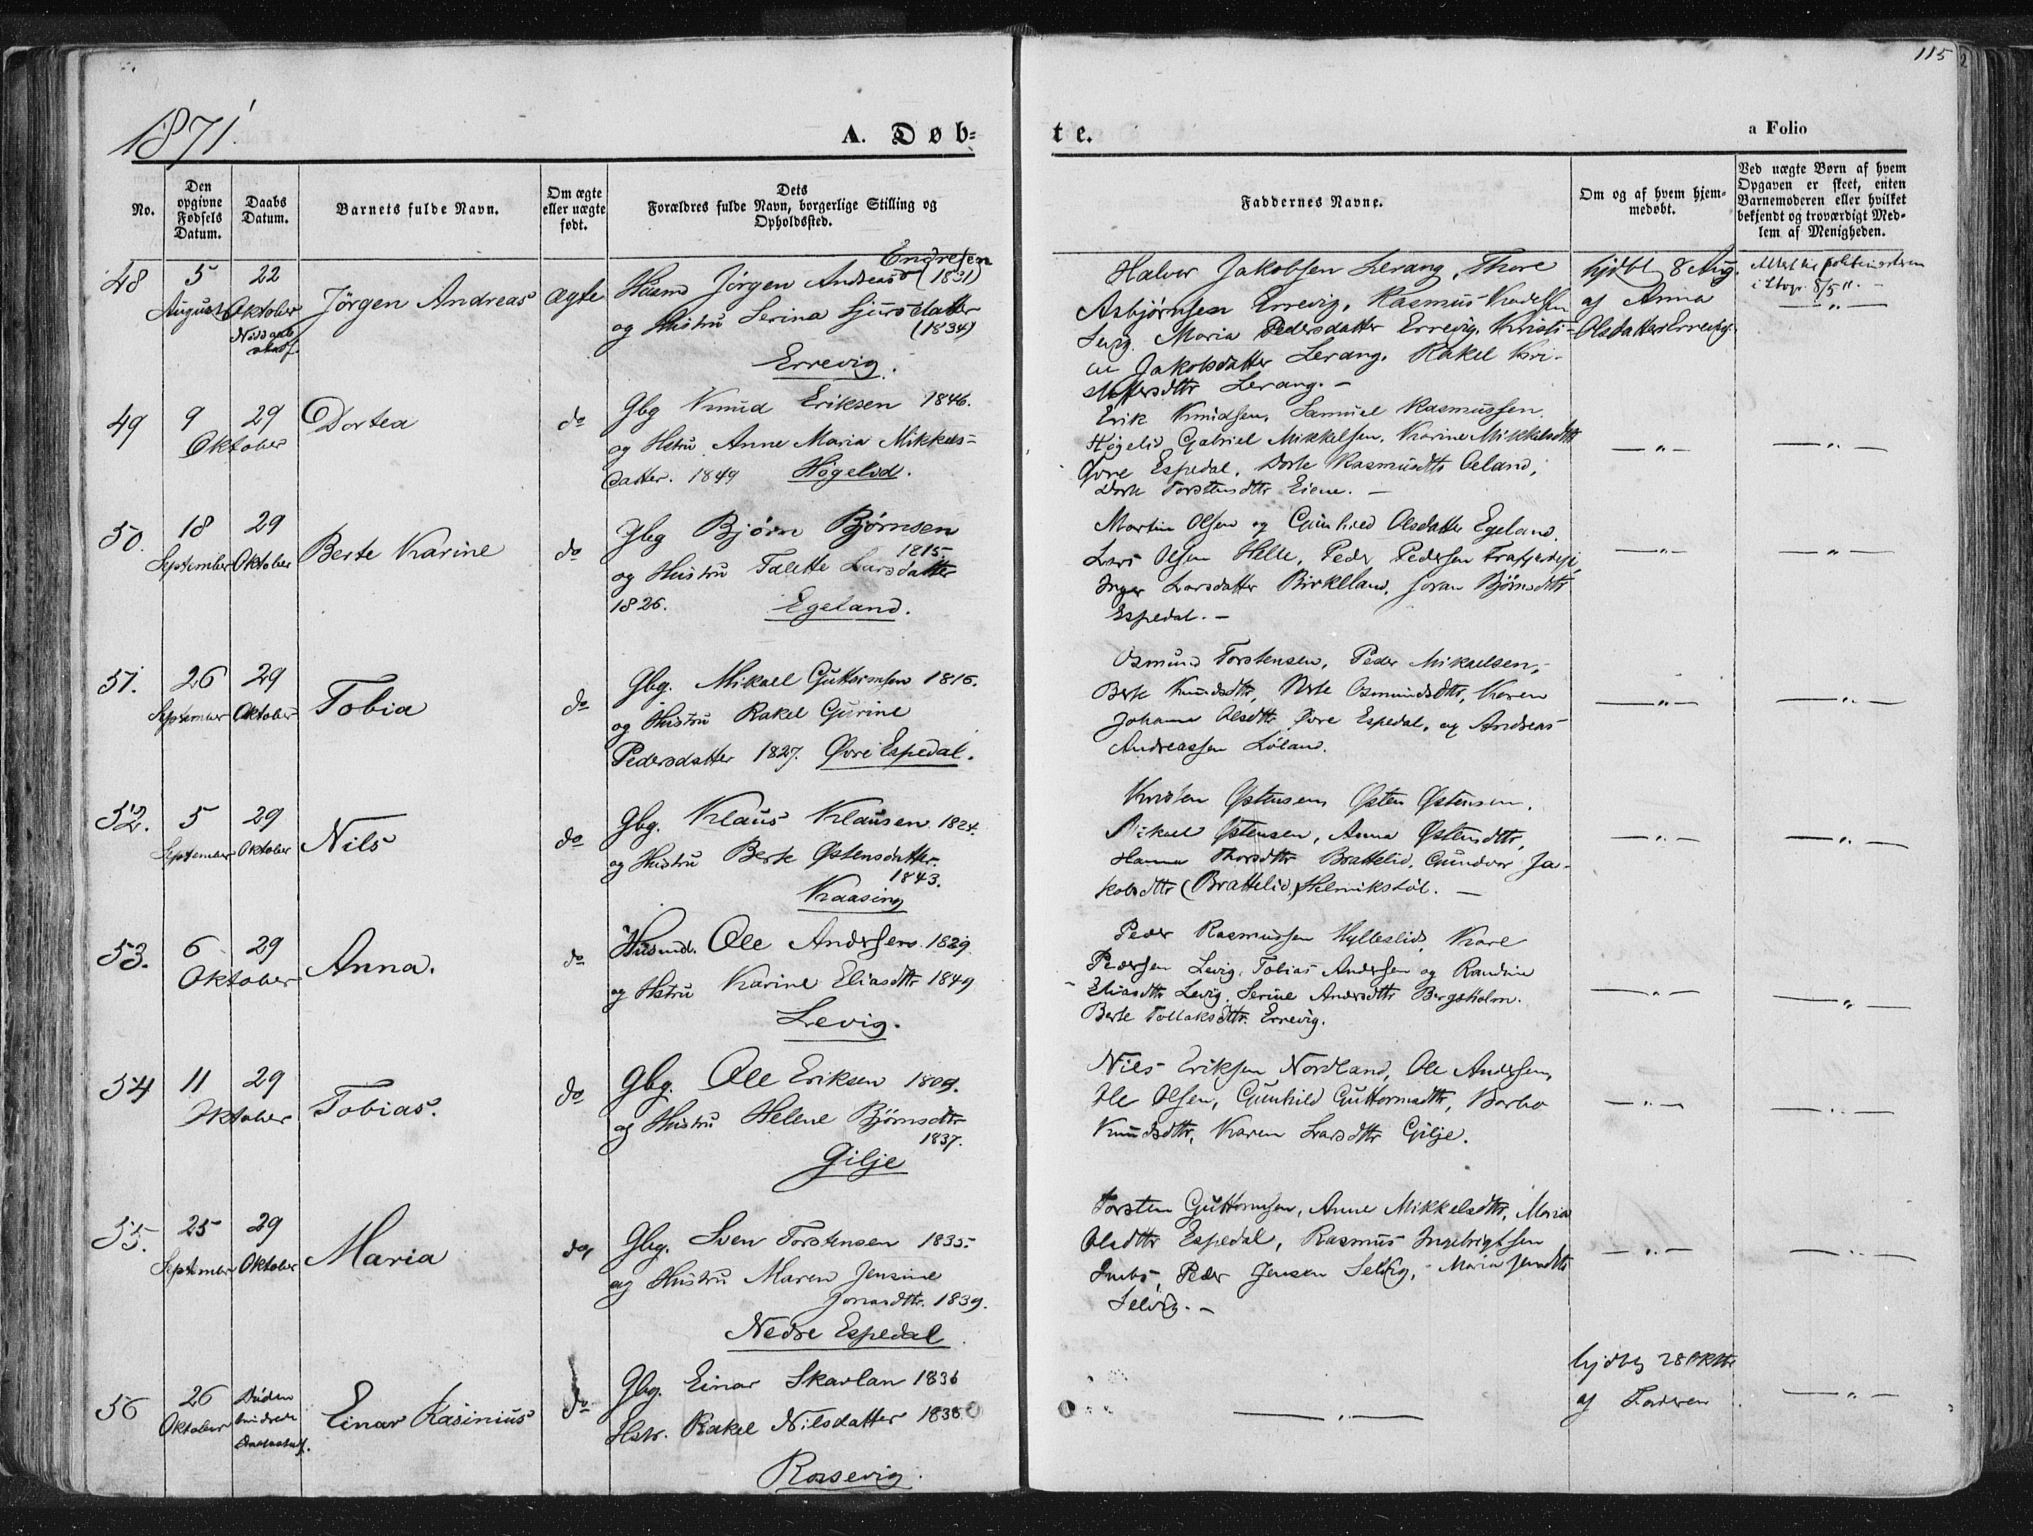 115
1871.
A. Døb=
te.
a Folio
No.
Den opgivne Fødsels Datum.
Daabs Datum.
Barnets fulde Navn.
Om ægte eller uægte født.
Dets Forældres fulde Navn, borgerlige Stilling og Opholdssted.
Faddernes Navne.
Om og af hvem hjem-
medøbt.
Ved uægte Børn af hvem
Opgaven er skeet, enten
Barnemoderen eller hvilket
bekjendt og troværdigt Med-
lem af Menigheden.
48
5 August
22 Oktober
Jörgen Andreas
ægte
Endresen
Husmd Jörgen Andreas (1831)
og Hustru Serina Sjursdatter
(1834)
Errevig.
Halvor Jakobsen Lerang, Thore
Asbjørnsen Errevig, Rasmus
Maria Pedersdatter Errevig, Kristi-
ne Jakobsdatter Lerang, Rakel Kri-
stoffersdttr Lerang. –
hjdbt 8 Aug.
af Anna
Olsdatter Errevig
— „ —
49
9 Oktober
29
Dortea
do
Gbg Knud Eriksen 1846.
og Hstru Anne Maria Mikkels-
datter. 1849 Högelid.
Erik Knudsen, Samuel Rasmussen
Högelid, Gabriel Mikkelsen, Karine Mikkelsdttr
Øvre Espedal, Dorte Rasmusdttr Øeland,
Dorte Torstensdttr Eiene. –
— „ —
— „ —
50.
18 September
29 Oktober
Berte Karine
do
Gbg Björn Björnsen
1815.
og Hustru Talette Larsdatter
1826. Egeland.
Martin Olsen og Gunhild Olsdatter Egeland.
Lars Olsen Helle, Peder Pedersen
Inger Larsdatter Birkeland, Joran Björnsdttr
Espedal. –
— „ —
— „ —
51.
26 September
29 Oktober
Tobia
do
Gbg. Mikael Guttormsen 1816.
og Hustru Rakel Gurine
Pedersdatter 1827. Øvre Espedal.
Osmund Torstensen, Peder Mikaelsen,
Berte Knudsdttr, Berte Osmundsdttr, Karen
Johanna Olsdttr Øvre Espedal, og Andreas
Andreassen Löland.
— „ —
— „ —
52.
5 September
29 Oktober
Nils
do
Gbg. Klaus Klausen 1824.
og Hustru Berte Østensdatter.
1843.
Kaasing
Kristen Østensen, Østen Østensen,
Mikael Østensen, Anna Østensdttr,
Hanna Thorsdttr Brattelid, Gundvor Ja-
kobsdttr (Brattelid,) Helmikstöl. –
— „ —
— „ —
53.
6 Oktober
29
Anna.
do
Husmd. Ole Andersen. 1829.
og Hstru Karine Eliasdttr 1849
Levig.
Peder Rasmussen Hylleslid, Kare
Pedersen Levig, Tobias Andersen og Randine
Eliasdttr Levig, Serine Andersdttr Bergsholm.
Berte Tollaksdttr. Errevig.
— „ —
— „ —
54
11 Oktober
29
Tobias.
do
Gbg. Ole Eriksen 1809.
og Hustru Helene Björnsdttr
1837.
Gilje
Nils Eriksen Nordland, Ole Andersen,
Ole Olsen, Gunhild Guttormsdttr, Barbo
Knudsdttr, Karen Larsdttr Gilje.
— „ —
— „ —
55.
25 September
29 Oktober
Maria
do
Gbg. Sven Torstensen 1835.
og Hustru Maren Jensine
Jonasdttr. 1839.
Nedre Espedal.
Torsten Guttormsen, Anne Mikkelsdttr, Maria
Olsdttr Espedal, Rasmus Ingebrigtsen
Peder Jensen Selvig, Maria
Selvig. –
— „ —
— „ —
56
26 Oktober
Einar Kasinius
do
Gbg. Einar Skarlan 1836
Hstr. Rakel Nilsdatter 1836
Rossevig.
— „ —
hjdbt 28 Oktbr
af Faderen
— „ —